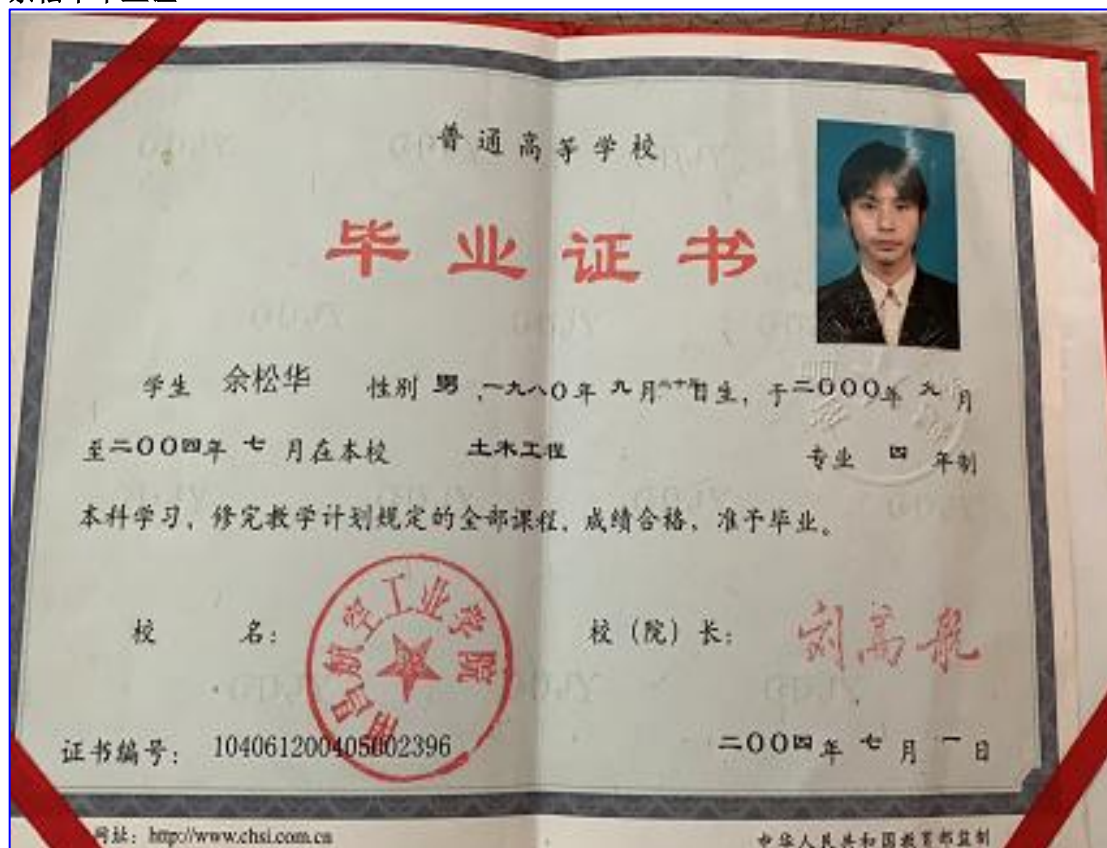 普通高等学校
毕业证书
学生 余松华 性别 男 ,一九八〇年 九月 日生, 于二〇〇〇年 九 月
至二〇〇四年 七 月在本校 土木工程 专业 四 年制
本科学习, 修完教学计划规定的全部课程, 成绩合格, 准予毕业。
校 名: 南昌航空工业学院
校(院)长: 刘高航
证书编号: 104061200405002396
二〇〇四年 七 月 一 日
网址: http://www.chsi.com.cn
中华人民共和国教育部监制